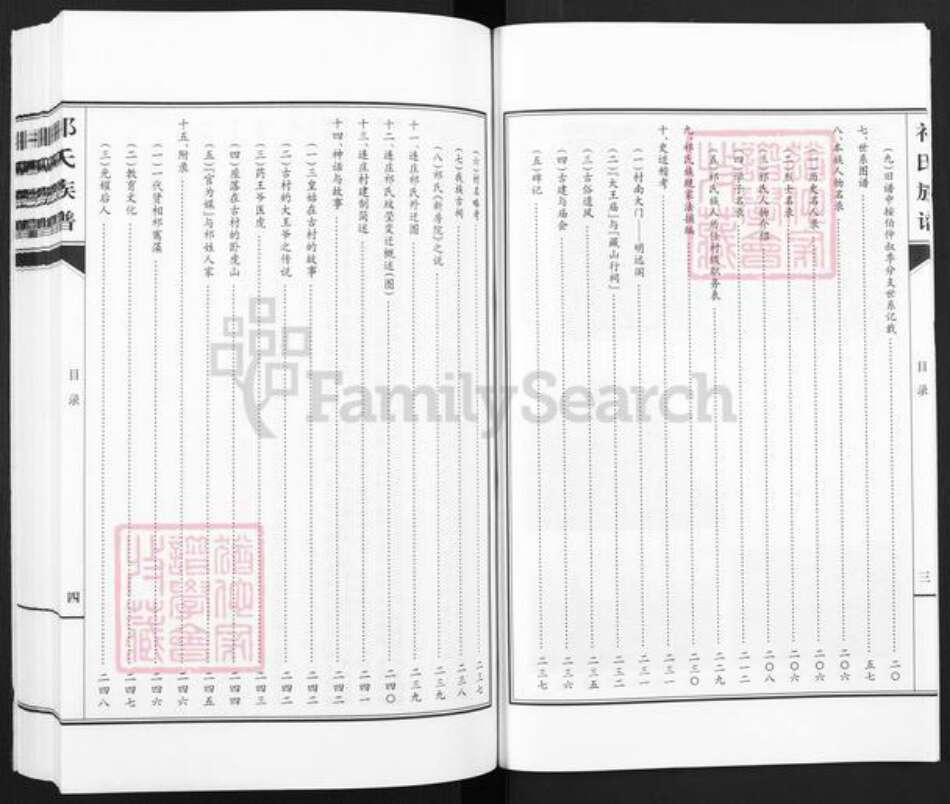 祁氏族谱
目录
三
(九)旧谱中按伯仲叔季分支世系记载 二〇
七、世系图谱 五七
八、本族人物名录 二〇六
(一)历史名人录 二〇六
(二)烈士名录 二〇六
(三)祁氏人物介绍 二〇八
(四)学子名录 二一二
(五)祁氏族人历任村级职务表 二二九
九、祁氏族规家法摘编 二三〇
十、史迹稽考 二三一
(一)村南大门——明远阁 二三一
(二)「大王庙」与「藏山行祠」 二三二
(三)古俗遗风 二三五
(四)古建与庙会 二三六
(五)碑记 二三七
(六)村名略考 二三七
(七)我族古祠 二三八
(八)祁氏《新房院》之说 二三九
十一、连庄祁氏外迁图 二三九
十二、连庄祁氏坟茔变迁概述(图) 二四〇
十三、连庄村建制简述 二四一
十四、神话与故事 二四二
(一)三皇姑在古村的故事 二四二
(二)古村的大王爷之传说 二四二
(三)药王爷医虎 二四三
(四)座落在古村的卧虎山 二四四
(五)「官为媒」与祁姓人家 二四五
十五、附录 二四六
(一)一代贤相祁寯藻 二四六
(二)教育文化 二四七
(三)光耀后人 二四八
祁氏族谱
目录
四
FamilySearch